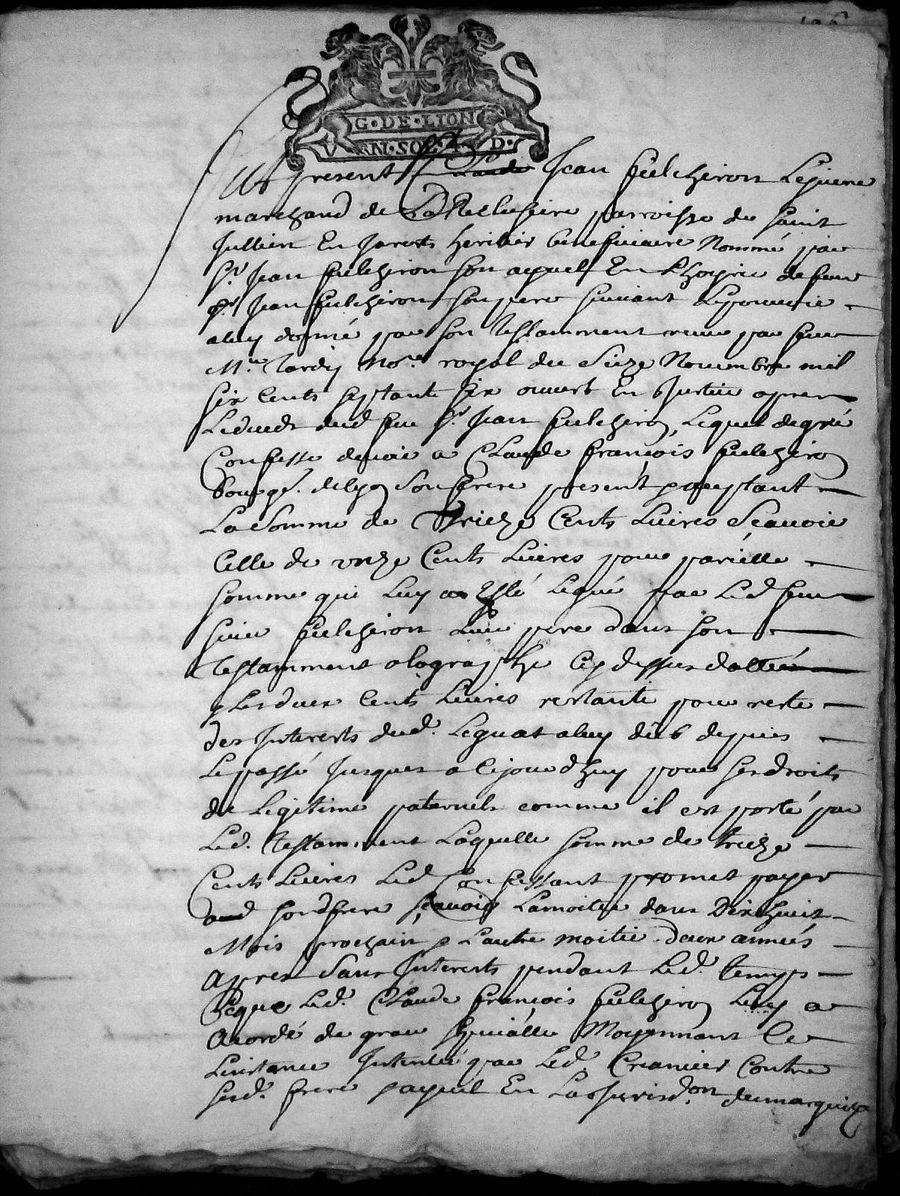 G·DE·LION
V N·SOL· D·
Fut present Jean fulchiron Lejeune
marchand de La Rellussiere parroisse de saint
Jullien En Jarests heritier beneficiaire Nommé par
Sr. Jean fulchiron son ayeul En L'hoyrie de feu
Sr. Jean fulchiron son pere suivant Le pouvoir
a luy donné par son Testamment receu par feu
Me. Tardy Nore. royal du Seize Novembre mil
six Cents septante six ouvert En Justice apres
Le deceds dud feu Sr. Jean fulchiron, Lequel de gré
Confesse devoir a Claude françois fulchiron
bourgs. de lyon Son frere present & acceptant
La somme de Trieze Cents Livres Scavoir
Celle de unze Cents Livres pour pareille
somme qui Luy a Esté Legué par Led feu
sieur fulchiron Leur pere dans son
Testamment olographe Cy dessus datté
& Les deux Cents Livres restants pour reste
des Interests dud. Legat a luy deub depuis
Le passé Jusques a Cejourd'huy pour ses droits
de Legitime paternels comme il est porté par
Led. Testamment Laquelle somme de trieze
Cents Livres Led Confessant promet payer
aud sond frere scavoir La moitié dans Dix huit
Mois prochain & L'autre moitié deux années
apres Sans Interests pendant Led. temps
que Led. Claude françois fulchiron Luy a
acordés de grace speciălle Moyennant Ce
L'instance Intentée par Led. Creancier Contre
sesd. frere & ayeul En La Jurisdon du marquiza